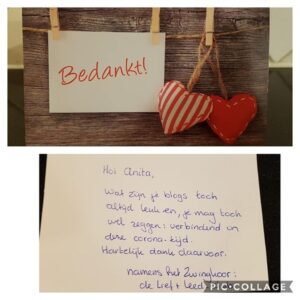 Bedankt!
Hoi Anita,
Wat zijn je blogs toch
altijd leuk en, je mag toch
wel zeggen: verbindend in
deze corona-tijd.
Hartelijk dank daarvoor.
namens het Zwinghoor:
de Lief + Leed
PIC·COLLAGE